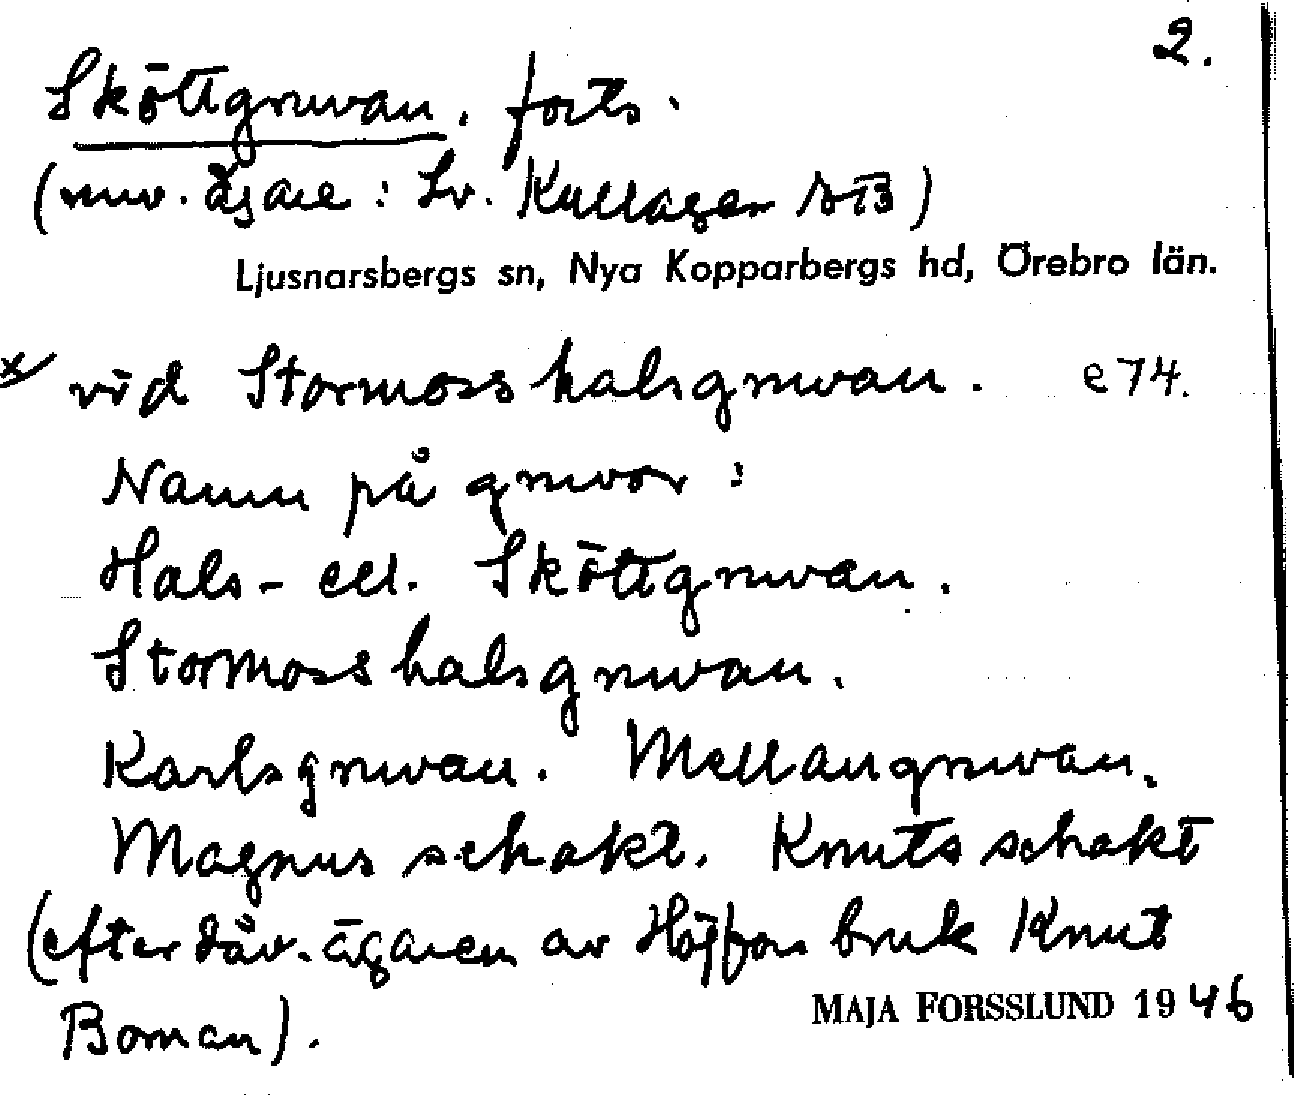 2.
Sköttgruvan. forts.
(nuv. ägare: Sv. Kullager AB)
Ljusnarsbergs sn, Nya Kopparbergs hd, Örebro län.
x/ vid Stormosshalsgruvan. e74.
Namn på gruvor:
Hals- ell. Sköttgruvan.
Stormosshalsgruvan.
Karlsgruvan. Mellangruvan.
Magnus schakt. Knuts schakt
(efter dåv. ägaren av Högfors bruk Knut
Boman).
MAJA FORSSLUND 1946